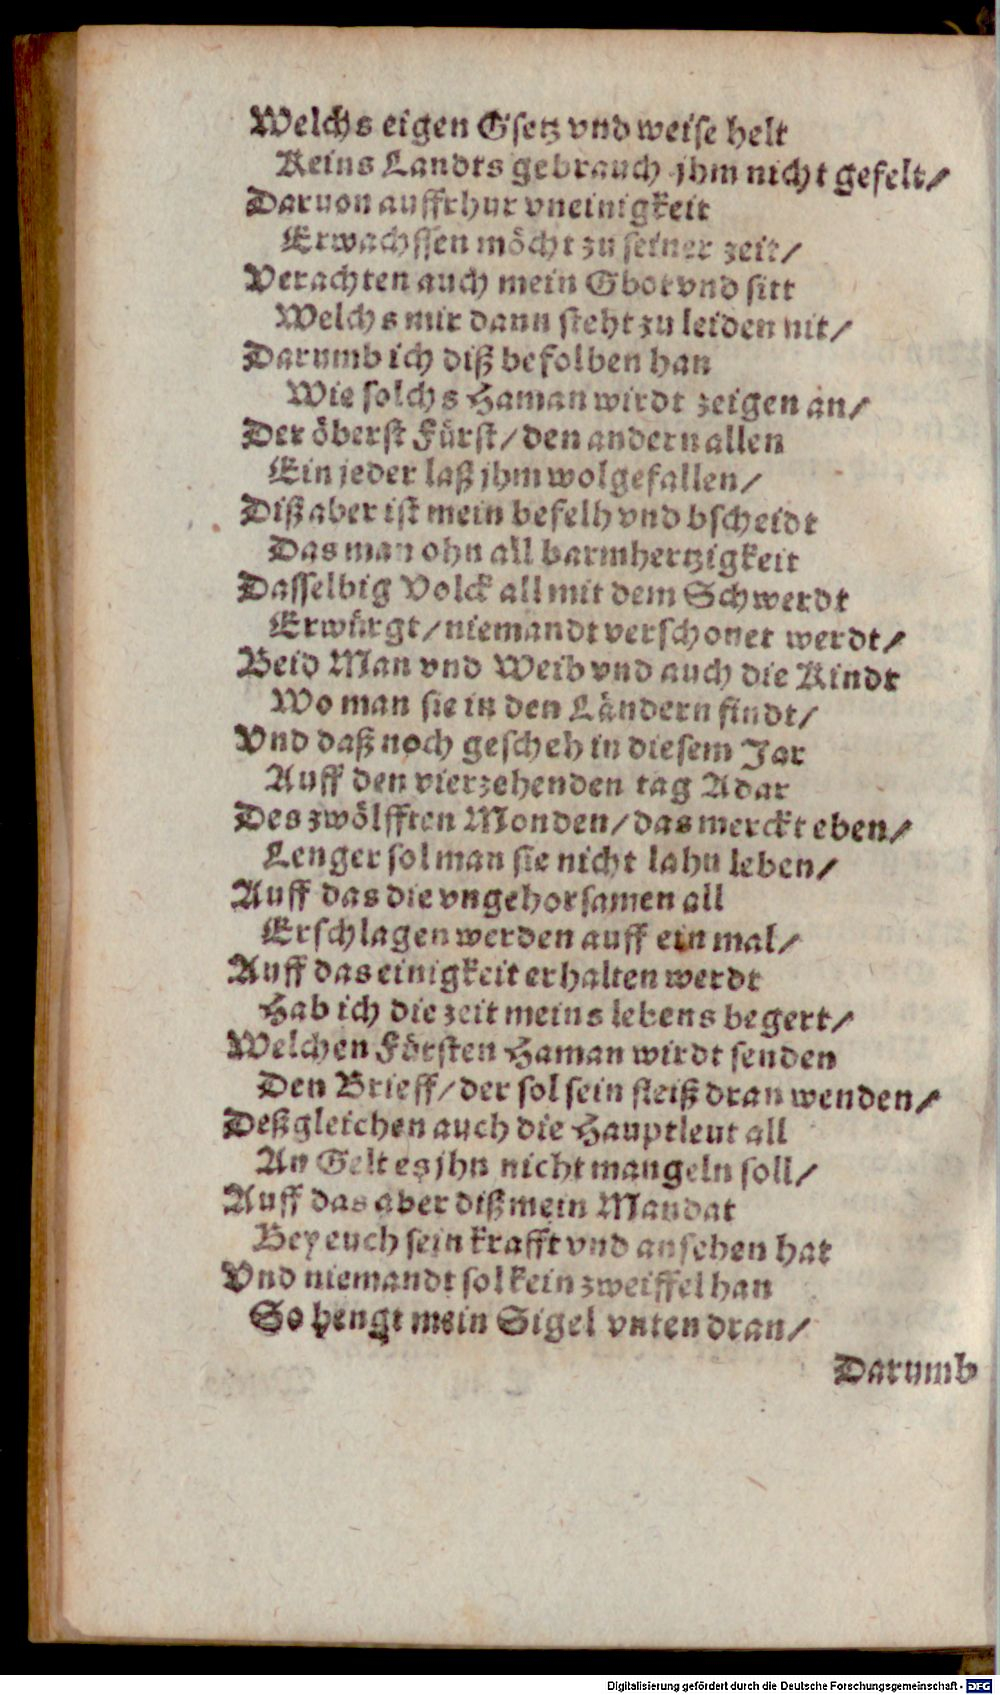 Welchs eigen Gsetz vnd weise helt
Keins Landts gebrauch jhm nicht gefelt/
Daruon auffrhur vneinigkeit
Erwachssen möcht zu seiner zeit/
Verachten auch mein Gbot vnd sitt
Welchs mir dann steht zu leiden nit/
Darumb ich diß befolhen han
Wie solchs Haman wirdt zeigen an/
Der öberst Fürst/ den andern allen
Ein jeder laß jhm wolgefallen/
Diß aber ist mein befelh vnd bscheidt
Das man ohn all barmhertzigkeit
Dasselbig Volck all mit dem Schwerdt
Erwürgt/ niemandt verschonet werdt/
Beid Man vnd Weib vnd auch die Kindt
Wo man sie in den Ländern findt/
Vnd daß noch gescheh in diesem Jar
Auff den vierzehenden tag Adar
Des zwölfften Monden/ das merckt eben/
Lenger sol man sie nicht lahn leben/
Auff das die vngehorsamen all
Erschlagen werden auff ein mal/
Auff das einigkeit erhalten werdt
Hab ich die zeit meins lebens begert/
Welchen Försten Haman wirdt senden
Den Brieff/ der sol sein fleiß dran wenden/
Deßgleichen auch die Hauptleut all
An Gelt es jhn nicht mangeln soll/
Auff das aber diß mein Mandat
Bey euch sein krafft vnd ansehen hat
Vnd niemandt sol kein zweiffel han
So hengt mein Sigel vnten dran/
Darumb
Digitalisierung gefördert durch die Deutsche Forschungsgemeinschaft - DFG